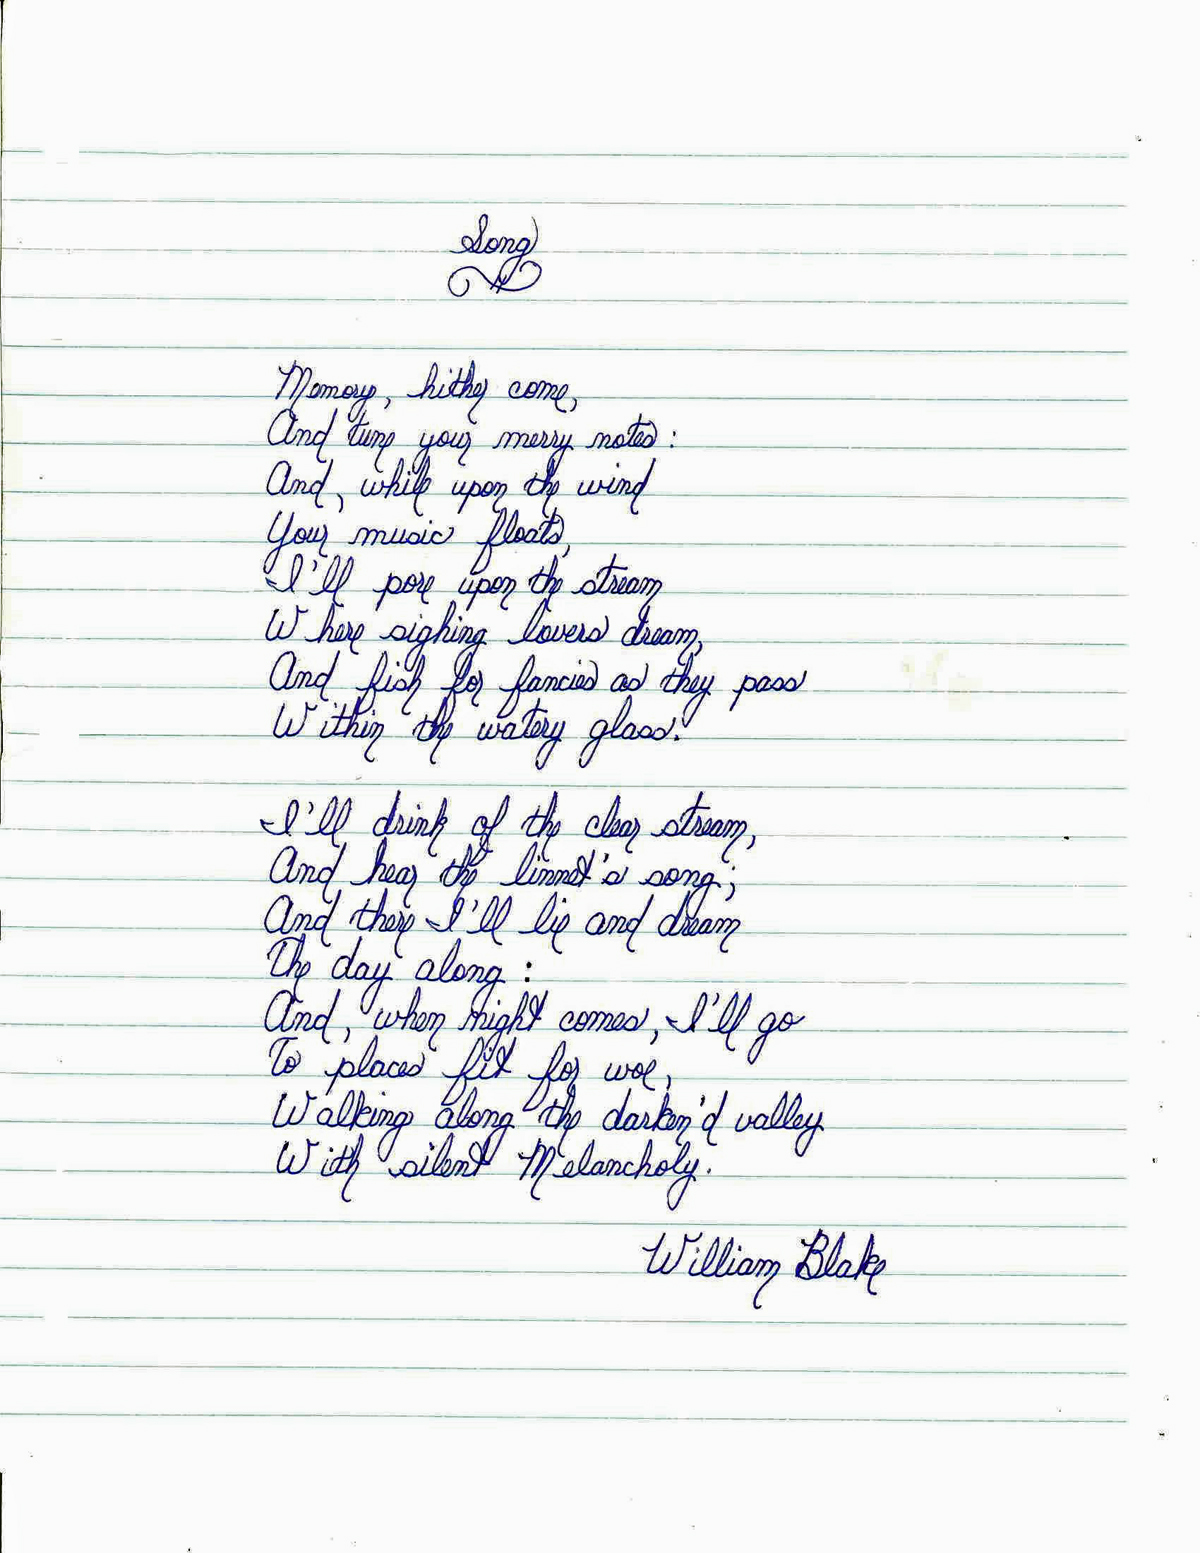 Song
Memory, hither come,
And tune your merry notes:
And, while upon the wind
Your music floats,
I'll pore upon the stream
Where sighing lovers dream,
And fish for fancies as they pass
Within the watery glass.
I'll drink of the clear stream,
And hear the linnet's song;
And there I'll lie and dream
The day along:
And, when night comes, I'll go
To places fit for woe,
Walking along the darken'd valley
With silent Melancholy.
William Blake